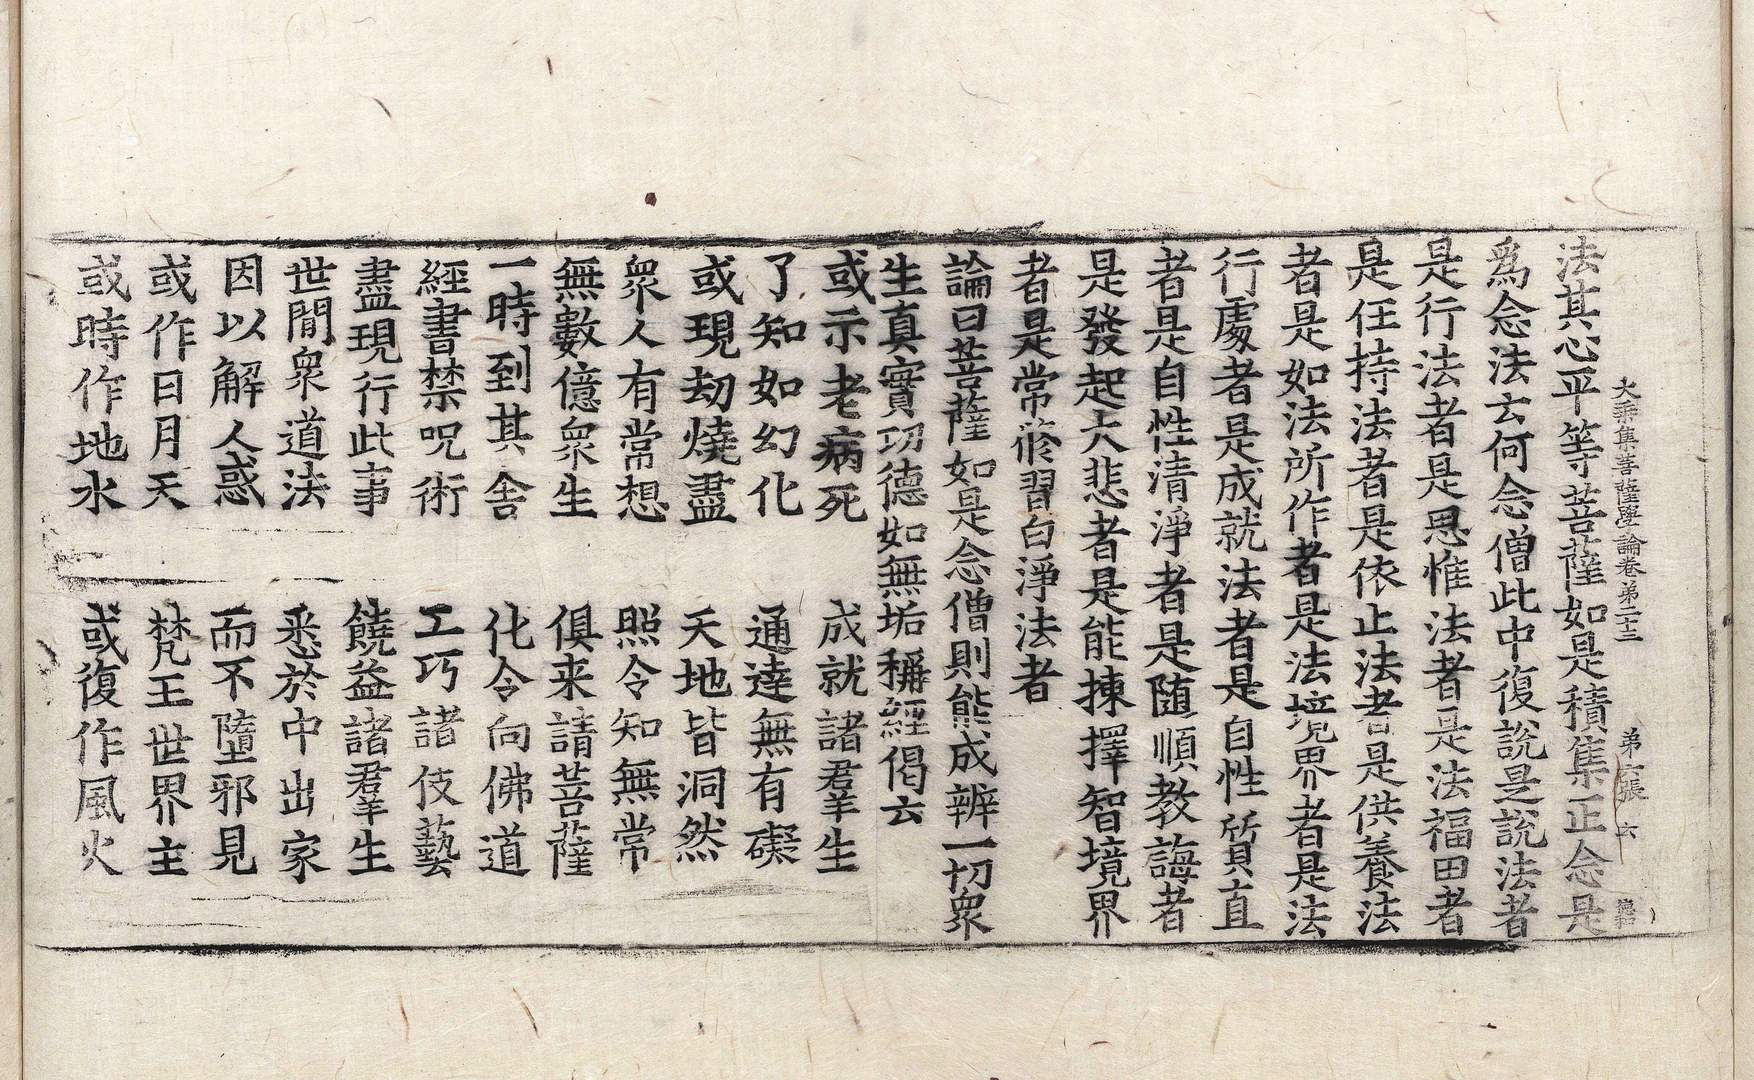 大乘集菩薩學論卷第二十三 第六張 六
法其心平等菩薩如是積集正念是
爲念法云何念僧此中復說是說法者
是行法者是思惟法者是法福田者
是任持法者是依止法者是供養法
者是如法所作者是法境界者是法
行處者是成就法者是自性質直
者是自性清淨者是随順教誨者
是發起大悲者是能揀擇智境界
者是常修習白淨法者
論曰菩薩如是念僧則能成辨一切衆
生真實功德如無垢稱經偈云
或示老病死 成就諸羣生
了知如幻化 通達無有礙
或現劫燒盡 天地皆洞然
衆人有常想 照令知無常
無數億衆生 俱来請菩薩
一時到其舍 化令向佛道
經書禁呪術 工巧諸伎藝
盡現行此事 饒益諸羣生
世間衆道法 悉於中出家
因以解人惑 而不墮邪見
或作日月天 梵王世界主
或時作地水 或復作風火